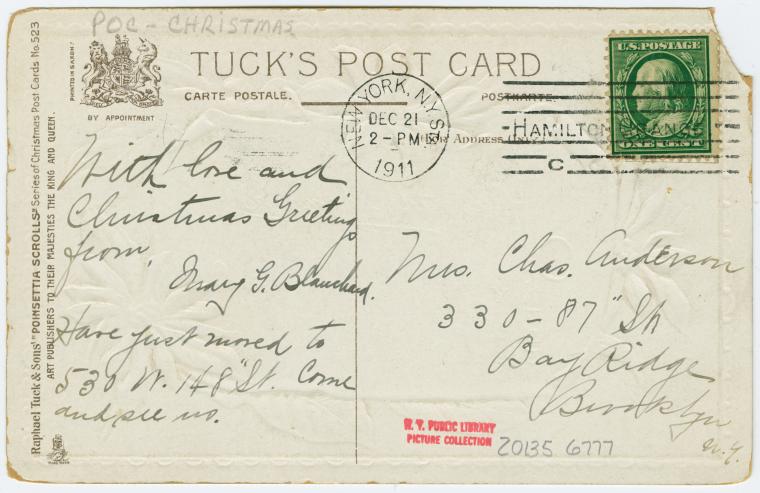 POC - CHRISTMAS
TUCK'S POST CARD
CARTE POSTALE.
POSTKARTE.
BY APPOINTMENT
PRINTED IN SAXONY
(FOR ADDRESS ONLY)
NEW YORK, N.Y. STA.
DEC 21
2 - PM
1911
HAMILTON GRANGE
C
U.S. POSTAGE
ONE CENT
With love and
Christmas Greetings
from
Mary G. Blanchard.
Have just moved to
530 W. 148" St. Come
and see us.
Mrs. Chas. Anderson
330-87" St
Bay Ridge
Brooklyn
N.Y.
Raphael Tuck & Sons' "POINSETTIA SCROLLS" Series of Christmas Post Cards No. 523
ART PUBLISHERS TO THEIR MAJESTIES THE KING AND QUEEN.
N. Y. PUBLIC LIBRARY
PICTURE COLLECTION
20135 6777